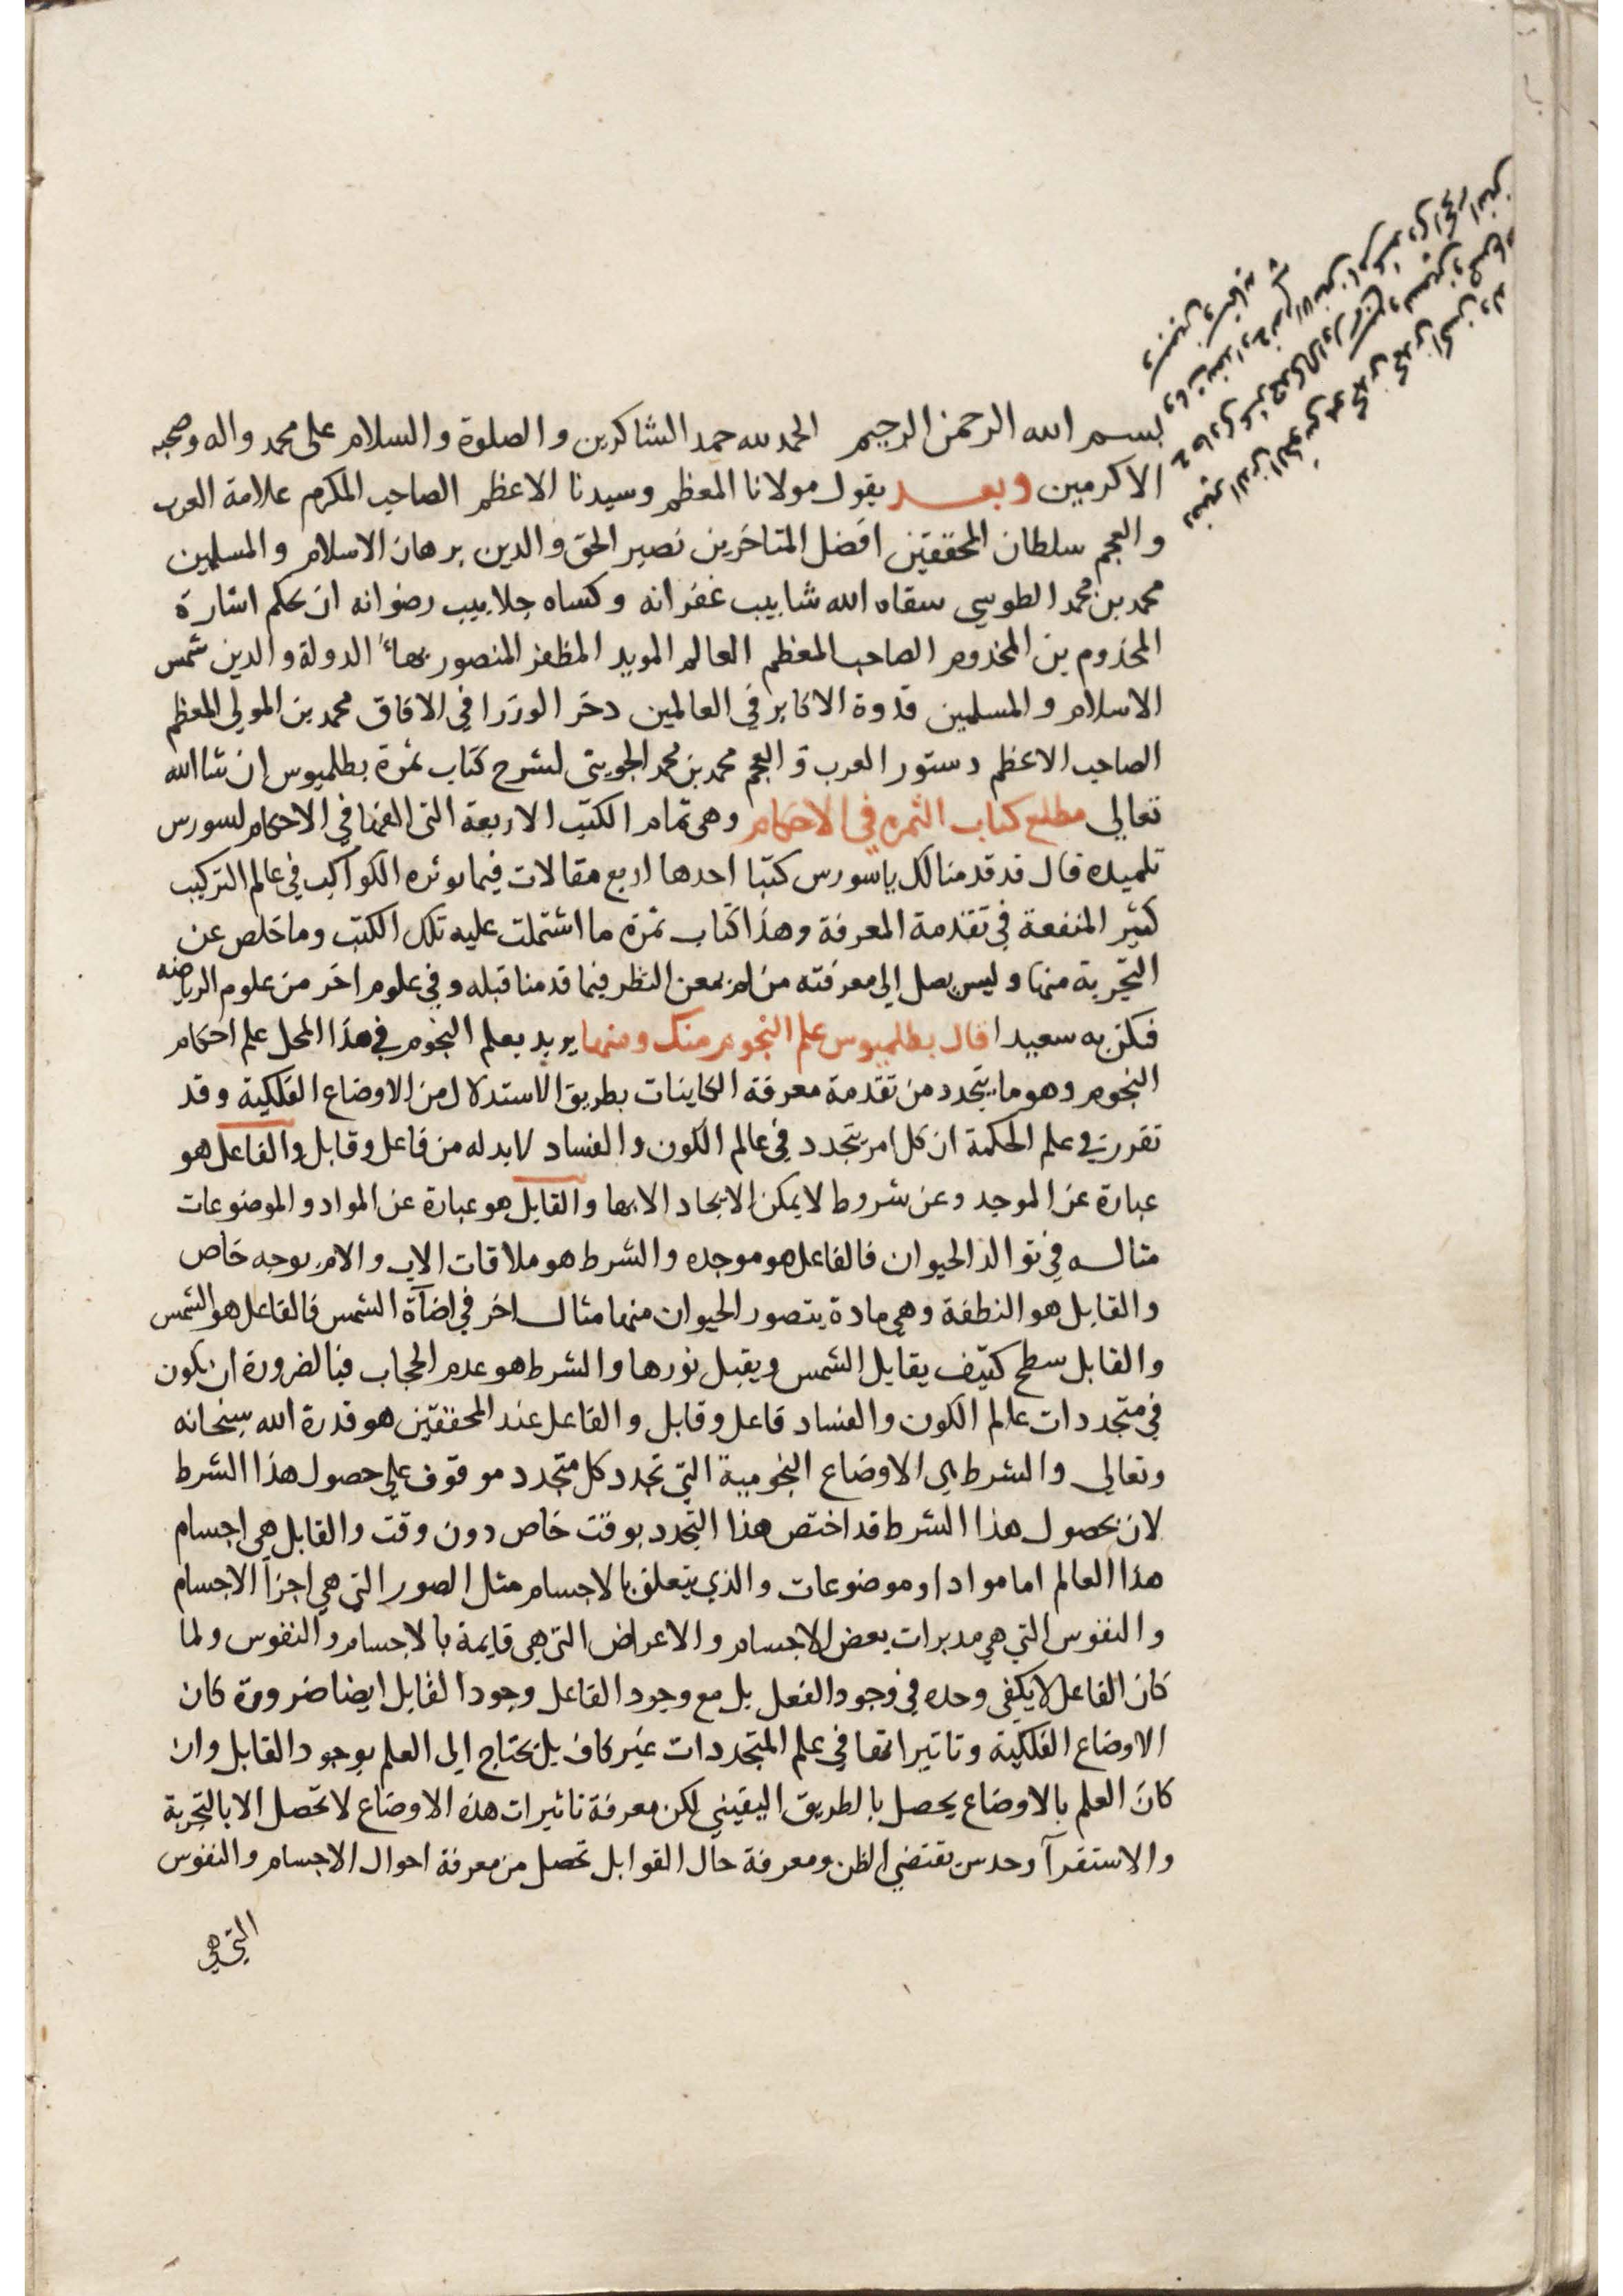 بسم الله الرحمن الرحيم الحمد لله حمد الشاكرين و الصلوة و السلام على محمد واله وصحبه
الاكرمين وبعد يقول مولانا المعظم وسيدنا الاعظم الصاحب المكرم علامة العرب
و العجم سلطان المحققين افضل المتاخرين نصير الحق و الدين برهان الاسلام و المسلمين
محمد بن محمد الطوسي سقاه الله شابيب غفرانه وكساه جلابيب رضوانه ان بحكم اشارة
المخذوم بن المخذوم الصاحب المعظم العالم المويد المظفر المنصور بهاء الدولة و الدين شمس
الاسلام و المسلمين قدوة الاكابر في العالمين دخر الوزرا في الافاق محمد بن المولي المعظم
الصاحب الاعظم دستور العرب و العجم محمد بن محمد الجويني لشرح كتاب ثمرة بطلميوس ان شا الله
تعالي مطلع كتاب الثمره في الاحكام وهى تمام الكتب الاربعة التى الفها في الاحكام لسورس
تلميده قال قد قدمنا لك ياسورس كتبا احدها اربع مقالات فيما يوثره الكواكب في عالم التركيب
كثير المنفعة في تقدمة المعرفة وهذا كتاب ثمرة ما اشتملت عليه تلك الكتب وما خلص عن
التجربة منها وليس يصل الي معرفته من لم يمعن النظر فيما قدمنا قبله و في علوم اخر من علوم الرياضه
فكن به سعيدا قال بطلميوس علم النجوم منك ومنها يريد بعلم النجوم في هذا المحل علم احكام
النجوم وهو ما يتجدد من تقدمة معرفة الكاينات بطريق الاستدلال من الاوضاع الفلكية و قد
تقرر في علم الحكمة ان كل امر يتجدد في عالم الكون و الفساد لا بد له من فاعل و قابل و الفاعل هو
عبارة عن الموجد وعن شروط لا يمكن الايجاد الا بها و القابل هو عبارة عن المواد و الموضوعات
مثاله في توالد الحيوان فالفاعل هو موجده و الشرط هو ملاقات الاب و الام بوجه خاص
و القابل هو النطفة وهي مادة يتصور الحيوان منها مثال اخر في اضآة الشمس فالفاعل هو الشمس
و القابل سطح كثيف يقابل الشمس ويقبل نورها و الشرط هو عدم الحجاب فبالضرورة ان يكون
في متجددات عالم الكون و الفساد فاعل و قابل و الفاعل عند المحققين هو قدرة الله سبحانه
وتعالي و الشرط هي الاوضاع النجومية التي تجدد كل متجدد موقوف علي حصول هذا الشرط
لان بحصول هذا الشرط قد اختص هذا التجدد بوقت خاص دون وقت و القابل هى اجسام
هذا العالم اما موادا و موضوعات و الذي يتعلق بالاجسام مثل الصور التي هي اجزآ الاجسام
و النفوس التي هي مدبرات بعض الاجسام و الاعراض التى هى قايمة بالاجسام و النفوس ولما
كان الفاعل لا يكفي وحده في وجود الفعل بل مع وجود الفاعل وجود القابل ايضا ضرورة كان
الاوضاع الفلكية و تاتيراتها في علم المتجددات غير كاف بل يحتاج الي العلم بوجود القابل وان
كان العلم بالاوضاع يحصل بالطريق اليقيني لكن معرفة تاثيرات هذه الاوضاع لا تحصل الا بالتجربة
و الاستقرآ وحدس يقتضي الظن ومعرفة حال القوابل تحصل من معرفة احوال الاجسام و النفوس
التي هي